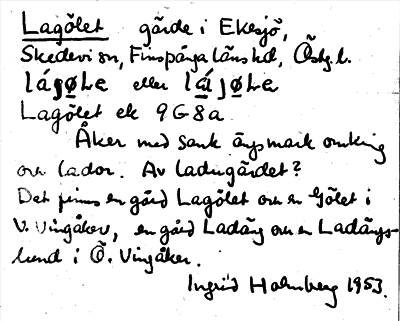 Lagölet gärde i Ekesjö,
Skedevi sn, Finspånga läns hd, Östg. l.
láɟøLe eller lá̱ɟøLe
Lagölet ek 9G8a
Åker med sank ängsmark omkring
och lador. Av ladugärdet?
Det finns en gård Lagölet och en Gölet i
V. Vingåker, en gård Ladäng och en Ladängs-
lund i Ö. Vingåker.
Ingrid Holmberg 1953.